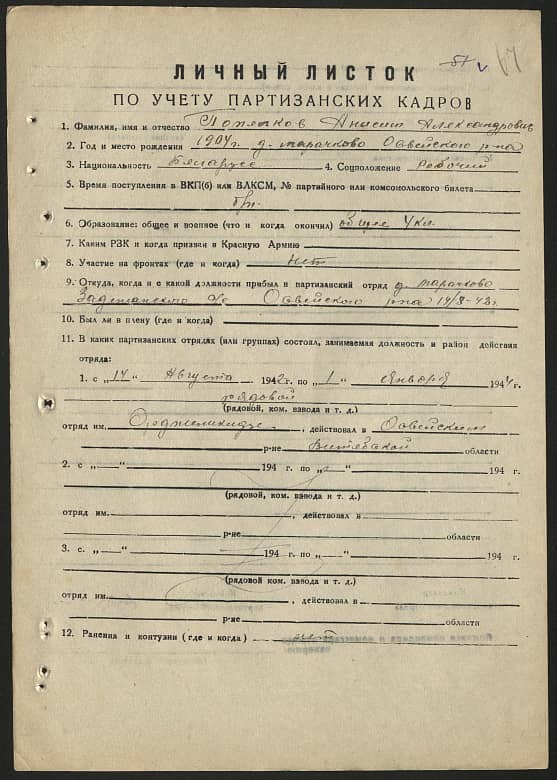 64
ЛИЧНЫЙ ЛИСТОК
ПО УЧЕТУ ПАРТИЗАНСКИХ КАДРОВ
1. Фамилия, имя и отчество Анисим Александрович
2. Год и место рождения 1904г. д. Тарачково Освейского р-на
3. Национальность Беларус 4. Соцположение Рабочий
5. Время поступления в ВКП(б) или ВЛКСМ, № партийного или комсомольского билета
б/п.
6. Образование: общее и военное (что и когда окончил) общее 4кл.
7. Каким РЗК и когда призван в Красную Армию
8. Участие на фронтах (где и когда) нет
9. Откуда, когда и с какой должности прибыл в партизанский отряд д. Тарачково
с/с Освейского р-на 14/8-42г.
10. Был ли в плену (где и когда)
11. В каких партизанских отрядах (или группах) состоял, занимаемая должность и район действия
отряда:
1. с „14“ Августа 1942г. по „1“ января 1944г.
рядовой
(рядовой, ком. взвода и т. д.)
отряд им. Орджоникидзе, действовал в Освейским
р-не Витебской области
2. с „—“ 194 г. по „—“ 194 г.
(рядовой, ком. взвода и т. д.)
отряд им. , действовал в
р-не области
3. с. „—“ 194 г. по „—“ 194 г.
(рядовой ком. взвода и т. д.)
отряд им. , действовал в
р-не области
12. Ранения и контузии (где и когда) нет